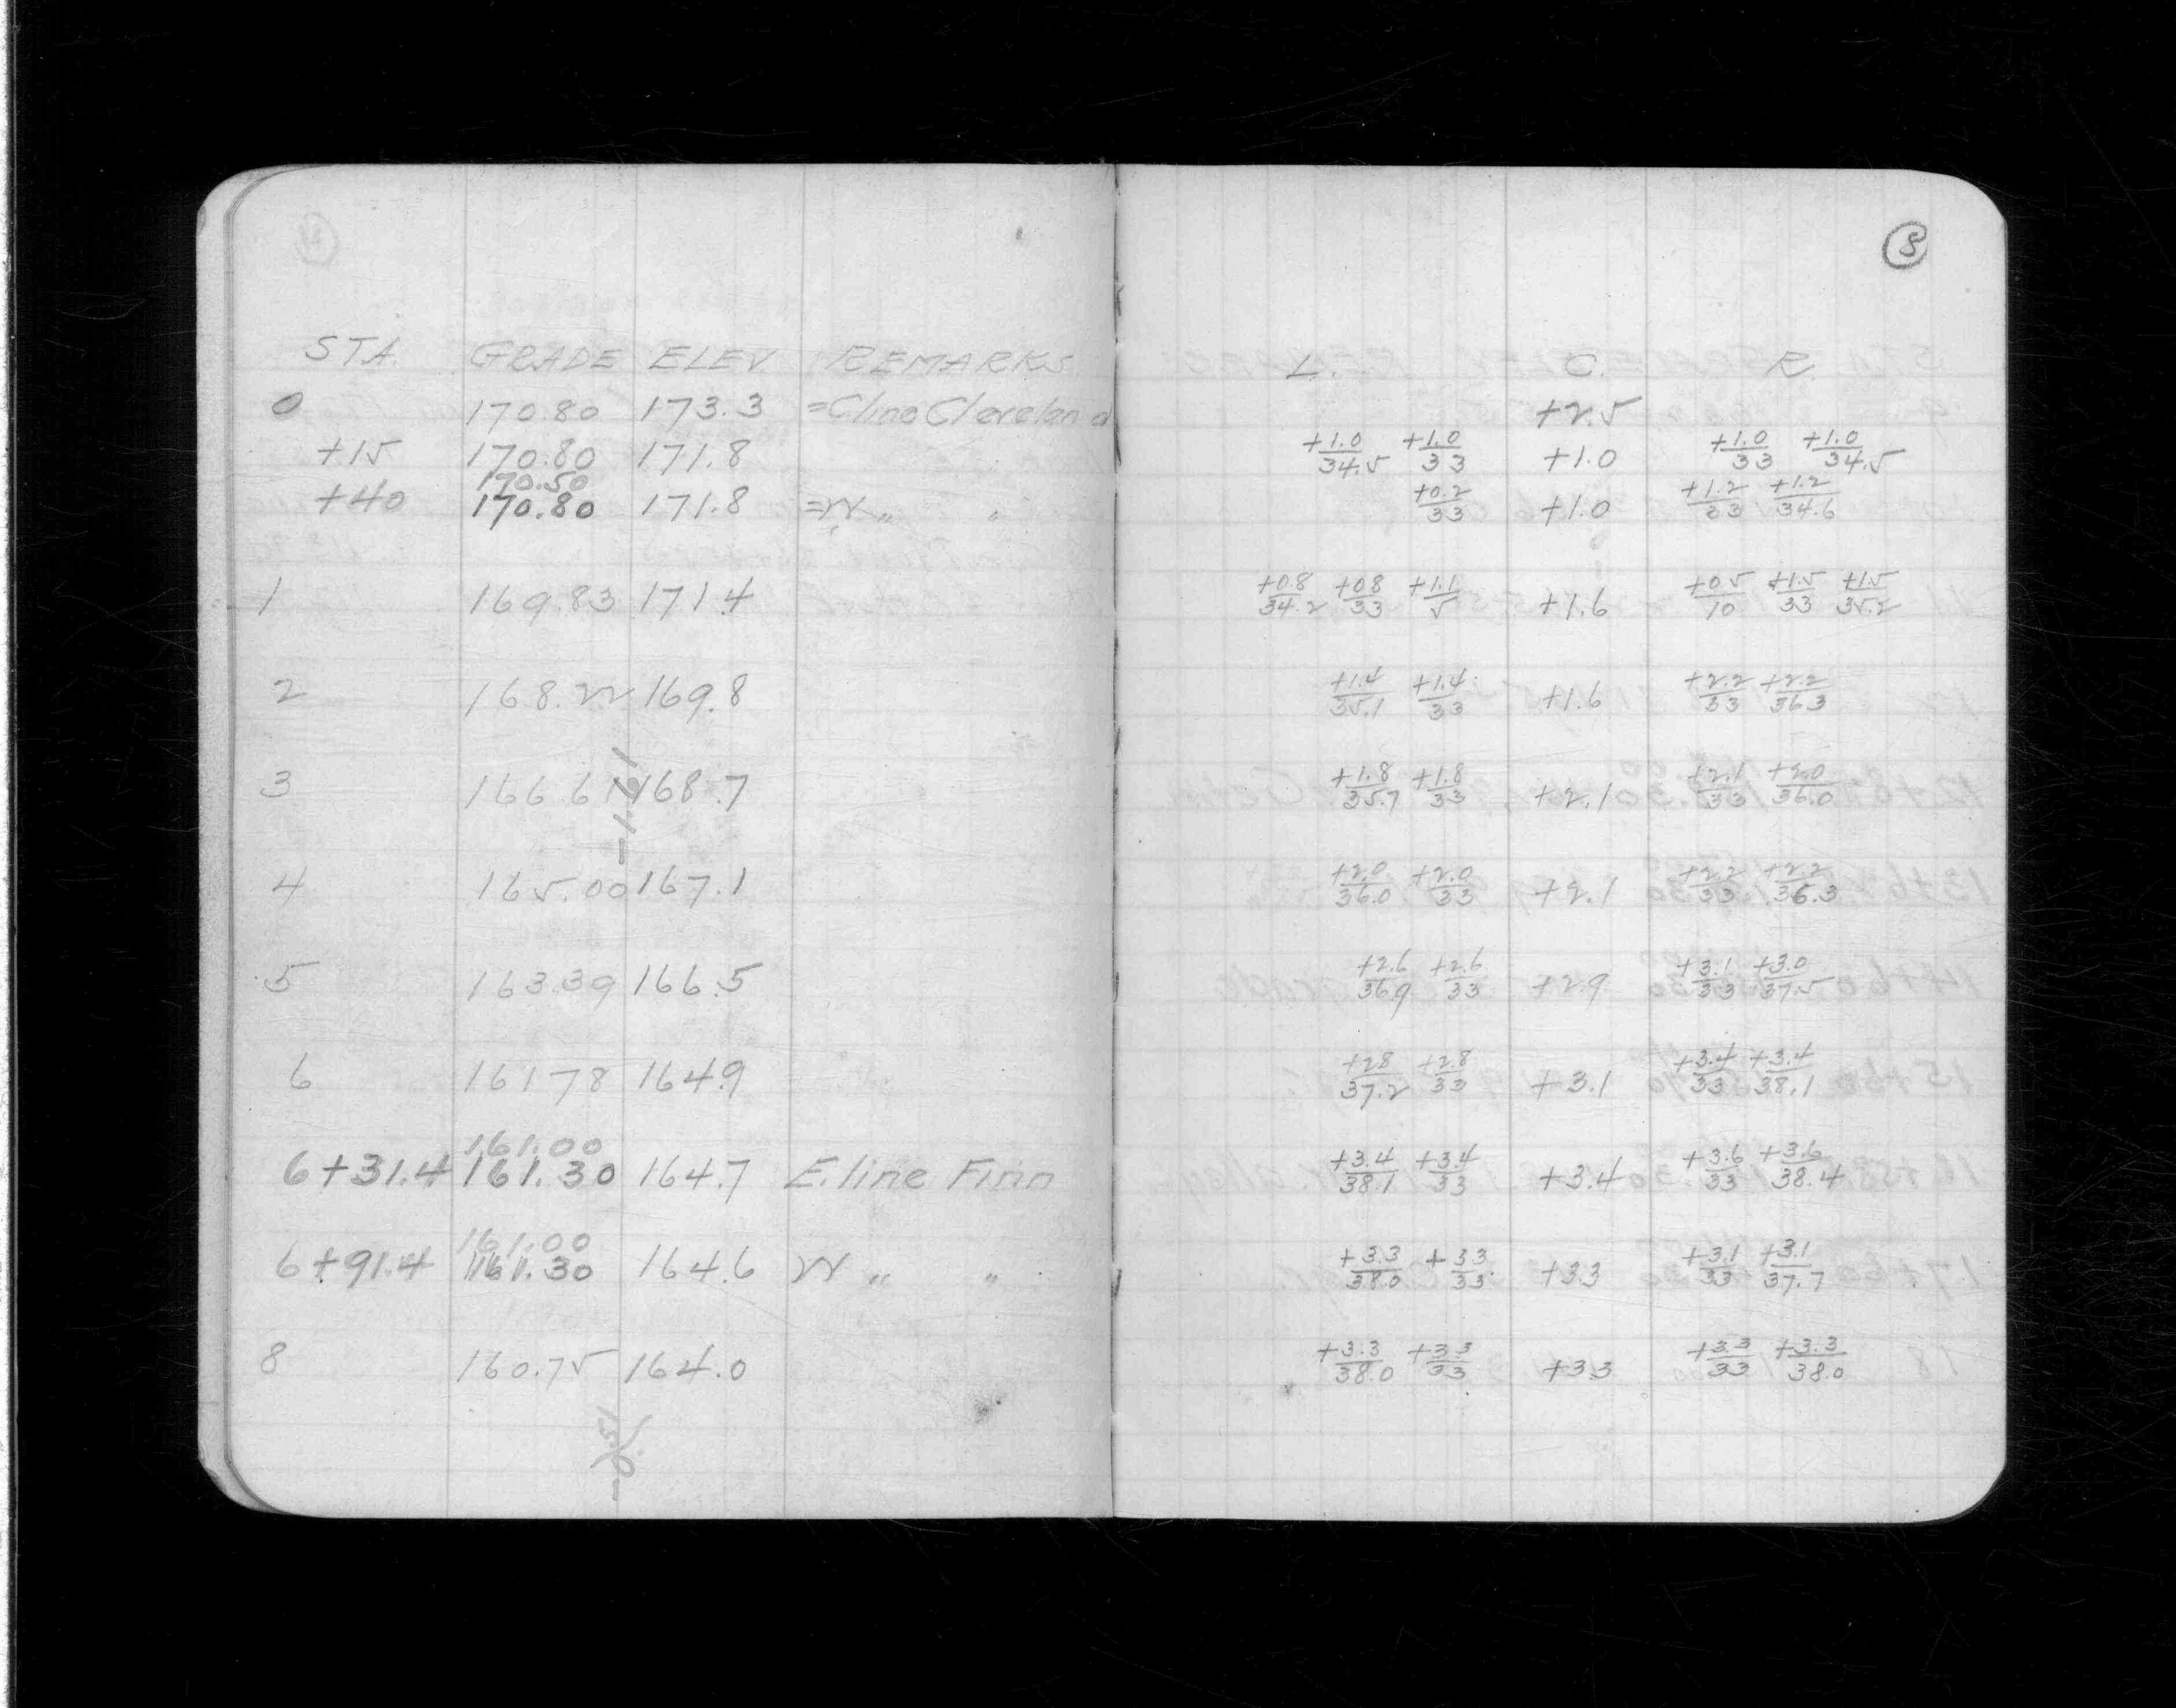 5
STA. GRADE ELEV REMARKS L. C. R.
0 170.80 173.3 =C line Cleveland +2.5
+15 170.80 171.8 +1.0/34.5 +1.0/33 +1.0 +1.0/33 +1.0/34.5
170.50
+40 170.80 171.8 =W " " +0.2/33 +1.0 +1.2/33 +1.2/34.6
1 169.83 171.4 +0.8/34.2 +0.8/33 +1.1/5 +1.6 +0.5/10 +1.5/33 +1.5/35.2
2 168.22 169.8 +1.4/35.1 +1.4/33 +1.6 +2.2/33 +2.2/36.3
3 166.61 168.7 +1.8/35.7 +1.8/33 +2.1 +2.1/33 +2.0/36.0
-1.61
4 165.00 167.1 +2.0/36.0 +2.0/33 +2.1 +2.2/33 +2.2/36.3
5 163.39 166.5 +2.6/36.9 +2.6/33 +2.9 +3.1/33 +3.0/37.5
6 161.78 164.9 +2.8/37.2 +2.8/33 +3.1 +3.4/33 +3.4/38.1
161.00
6+31.4 161.30 164.7 E. line Finn +3.4/38.1 +3.4/33 +3.4 +3.6/33 +3.6/38.4
161.00
6+91.4 161.30 164.6 W " " +3.3/38.0 +3.3/33 +3.3 +3.1/33 +3.1/37.7
8 160.75 164.0 +3.3/38.0 +3.3/33 +3.3 +3.3/33 +3.3/38.0
-0.51